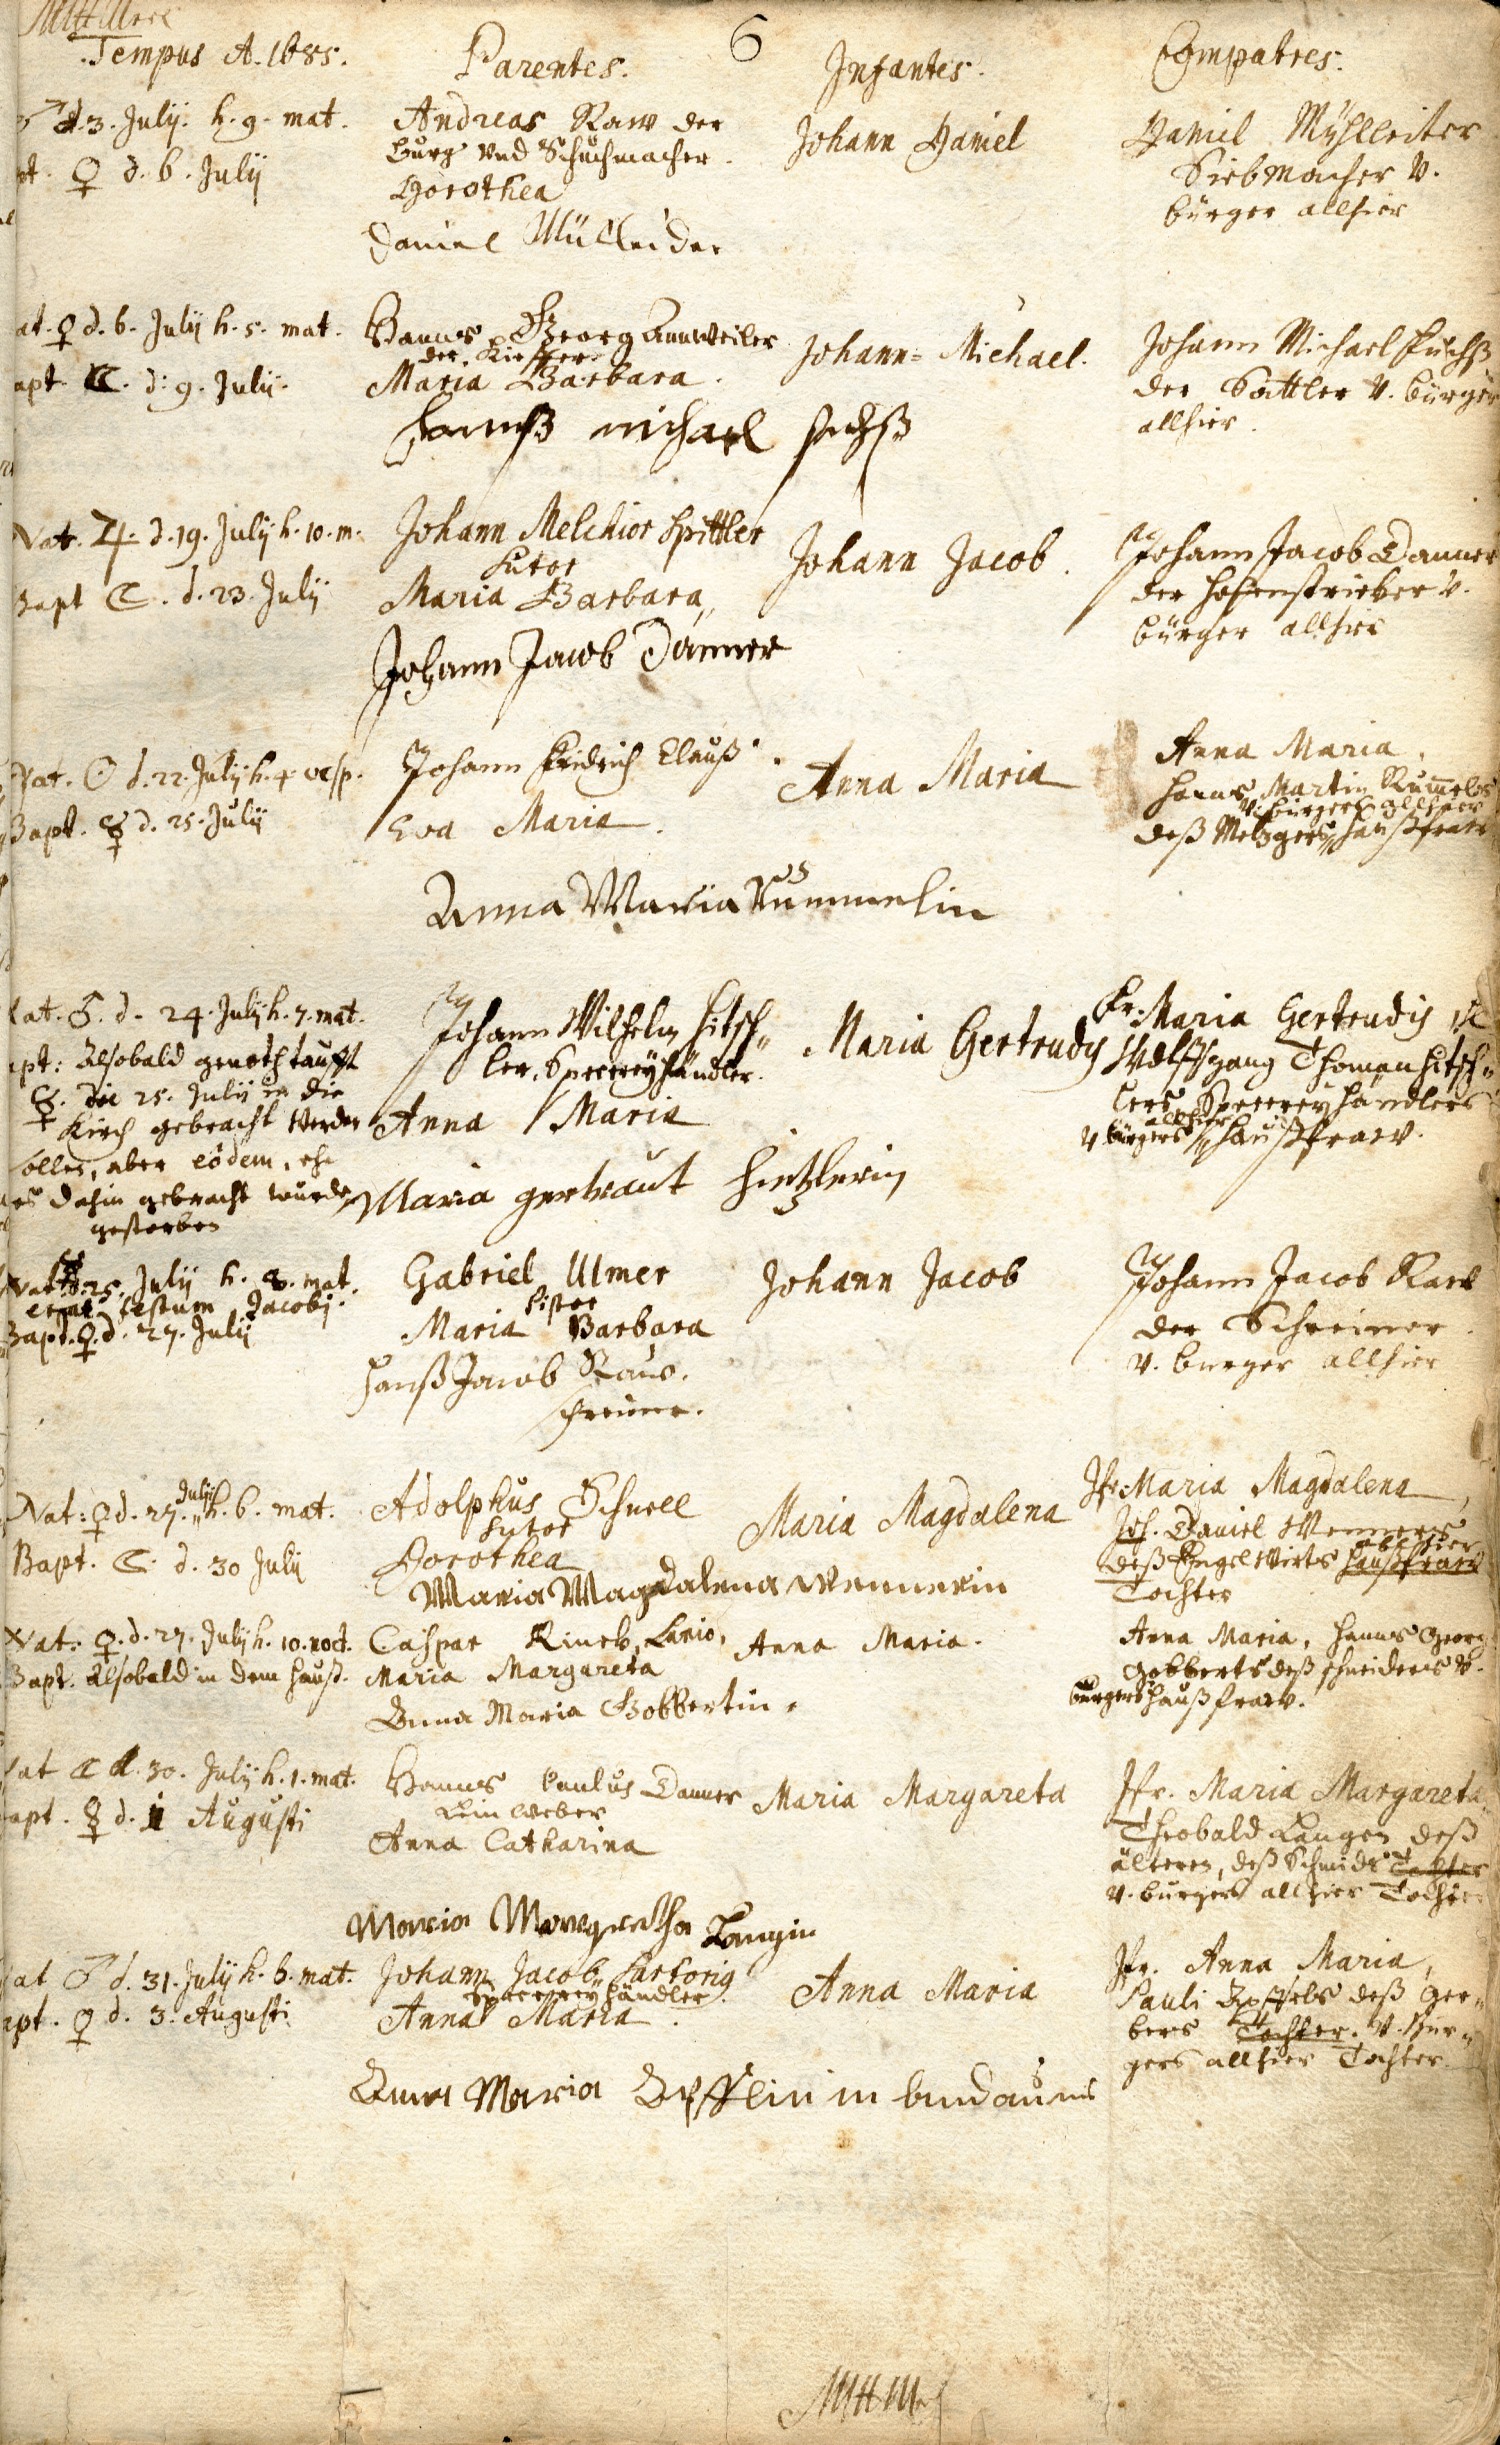 6
Tempus A. 1685.
Parentes.
Infantes.
Compatres.
♂ d. 3. Julij. h. 9. mat.
♀ d. 6. Julij
Andreas Raw der
burg. und Schuchmacher.
Dorothea
Daniel
Johann Daniel
Daniel Mühlleiter
Siebmacher v.
bürger allhier
at. ♀ d. 6. Julij h. 5. mat.
apt. ☾. d. 9. Julij.
Hanns Georg Annweiler
der Kieffer
Maria Barbara.
Hannß michael fuchß
Johann= Michael.
Johann Michael Fuchß
der Sattler v. bürger
allhier.
Nat. ♃. d. 19. Julij h. 10. m.
Bapt ☾. d. 23. Julij
Johann Melchior Spittler
Sutor
Maria Barbara
Johann Jacob Danner
Johann Jacob.
Johann Jacob Danner
der hosenstricker v.
bürger allhier
Nat. ☉ d. 22. Julij h. 4 vesp.
Bapt. ☿ d. 25. Julij
Johann Fridrich Clauß.
Eva Maria.
Anna Maria Rummelin
Anna Maria
Anna Maria,
Hanns Martin Rum̅els
v. bürgers allhier
deß Metzgers haußfraw
at. ♂. d. 24. Julij h. 7. mat.
apt: Alsobald genothtaufft
☿. die 25. Julij in die
Kirch gebracht werden
sollen, aber eodem, ehe
es dahin gebracht wurde
gestorben
Johann Wilhelm Hitsch„
ler, Specereyhändler.
Anna Maria
Maria gertraut hietzlerin
Maria Gertrudis
Fr. Maria Gertrudis,
Wolffgang Thoman Hitsch„
lers Specereyhändlers
allhier
v. bürgers haußfraw.
Nat. ☿ d. 25. Julij h. 8. mat.
erat festum Jacobj.
Bapt. ♀. d. 27. Julij
Gabriel Ulmer
Pistor
Maria Barbara
Hanß Jacob Rau.
schreiner.
Johann Jacob
Johann Jacob
der Schreiner
v. burger allhier
Nat: ♀ d. 27. Julij h. 6. mat.
Bapt. ☾. d. 30 Julij
Adolphus Schnell
Sutor
Dorothea
Maria Magdalena wennerin
Maria Magdalena
Jfr. Maria Magdalena,
Joh. Daniel Wenners
allhier
deß Engelwirts haußfraw
Tochter
Nat. ♀. d. 27. Julij h. 10. noct.
Bapt. Alsobald in dem hauß.
Caspar Rinck, Lanio,
Maria Margareta
Anna Maria Gobbertin
Anna Maria.
Anna Maria, Hanns Georg
Gobberts deß schneiders v.
burgers haußfraw.
at ☾ d. 30. Julij h. 1. mat.
apt. ☿ d. 1 Augusti
Hanns Paulus Danner
Leinweber
Anna Catharina
Maria Margretha Langin
Maria Margareta
Jfr. Maria Margareta
Theobald Langen deß
älteren, deß Schmids Tochter
v. burgers allhier Tochter
at ♂ d. 31. Julij h. 6. mat.
apt. ♀ d. 3. Augusti
Johann Jacob Sartorig
Specereyhändler.
Anna Maria.
Anna Maria
Anna Maria
Jfr. Anna Maria,
Pauli deß Ger„
bers Tochter. v. Bur„
gers allhier Tochter.